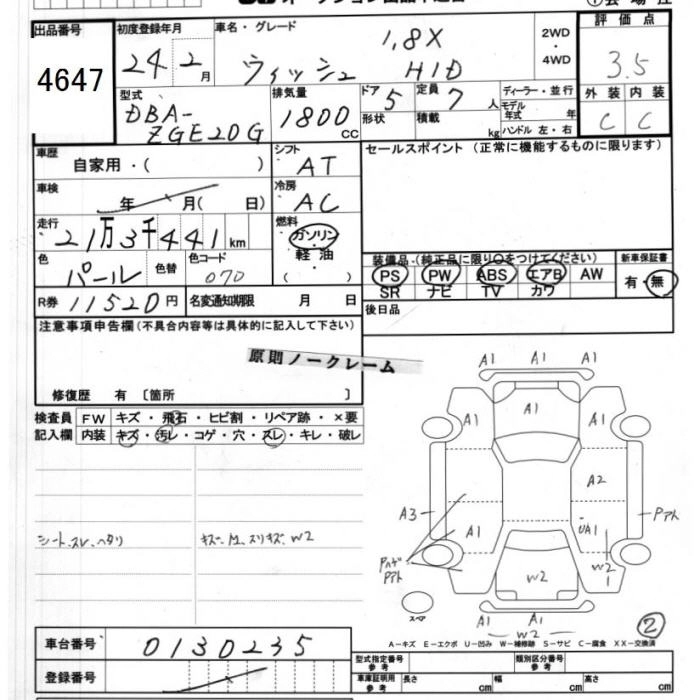 出品番号 初度登録年月 車名・グレード 評価点
4647 24年 2月 ウィッシュ 1.8X HID 2WD・4WD 3.5
型式 DBA-ZGE20G 排気量 1800CC ドア 5 定員 7人 ディーラー・並行
形状 積載 kg モデル年式 年 ハンドル 左・右
外装 内装
C C
車歴 自家用・( ) シフト AT セールスポイント(正常に機能するものに限ります)
車検 年 月( 日) 冷房 AC
走行 21万3千441km 燃料 ガソリン・軽油 ( )
色 パール 色替 色コード 070
装備品・(純正品に限り○をつけてください) 新車保証書
PS PW ABS エアB AW 有・無
SR ナビ TV カワ
R券 11520円 名変通知期限 月 日 後日品
注意事項申告欄(不具合内容等は具体的に記入して下さい)
原則ノークレーム
修復歴 有 〔箇所 〕
検査員 FW キズ・飛石・ヒビ割・リペア跡・×要
記入欄 内装 キズ・汚レ・コゲ・穴・スレ・キレ・破レ
シート、スレ、ヘタリ
A1 A1 A1
A1 A1 A1
A2
A3 A1 UA1 Pアト
Pハゲ
Pアト
W2 W2
スペア
A1 A1
W2
②
A-キズ E-エクボ U-凹み W-補修跡 S-サビ C-腐食 XX-交換済
車台番号 0130235
登録番号
型式指定番号 参考 類別区分番号 参考
車庫証明用 参考 長さ cm 幅 cm 高さ cm